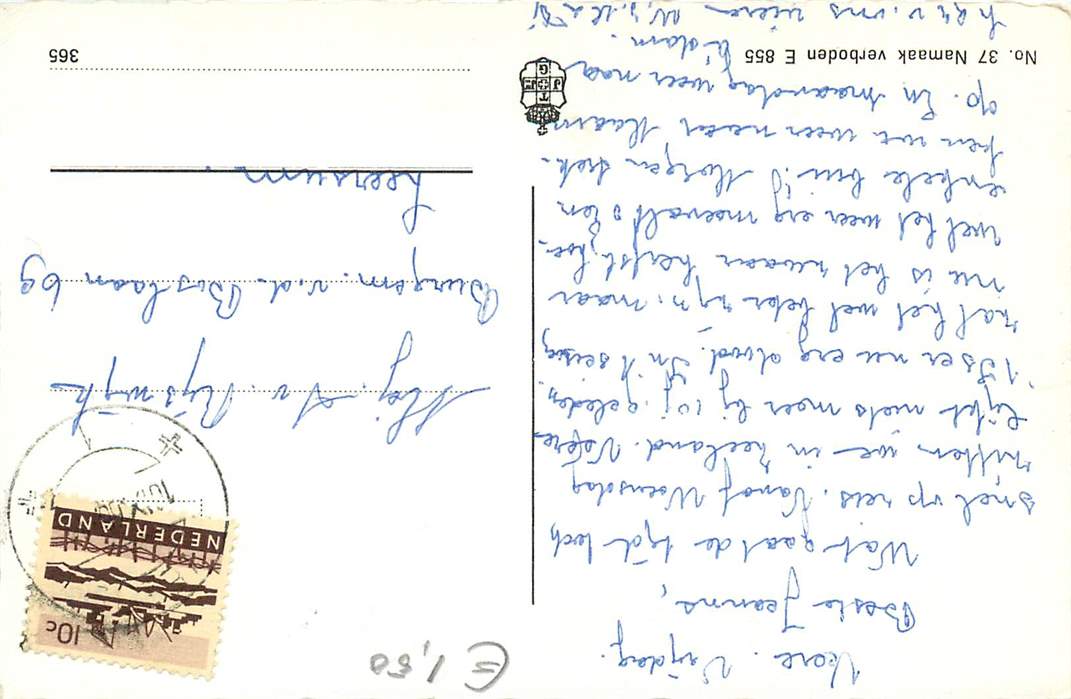 Veere. Vrijdag.
Beste Jeanne,
Wat gaat de tijd toch
snel op reis. Vanaf Woensdag
zitten we in Zeeland. Veere
lijkt niets meer bij 10 j. geleden
't Is er nu erg dood. In 't seizoen
zal het wel beter zijn. maar
nu is het zwaar herfst, hoe-
wel het weer erg meevalt. Een
enkele bui! Morgen trek-
ken we weer naar Maarn
op. En maandag weer naar
A'dam.
h. gr. v. ons vieren W,
€ 1,50
10c
NEDERLAND
Mej. A v. Rijswijk
Burgem. v.d. Boslaan 69
Leersum.
T
J G
No. 37 Namaak verboden E 855
365